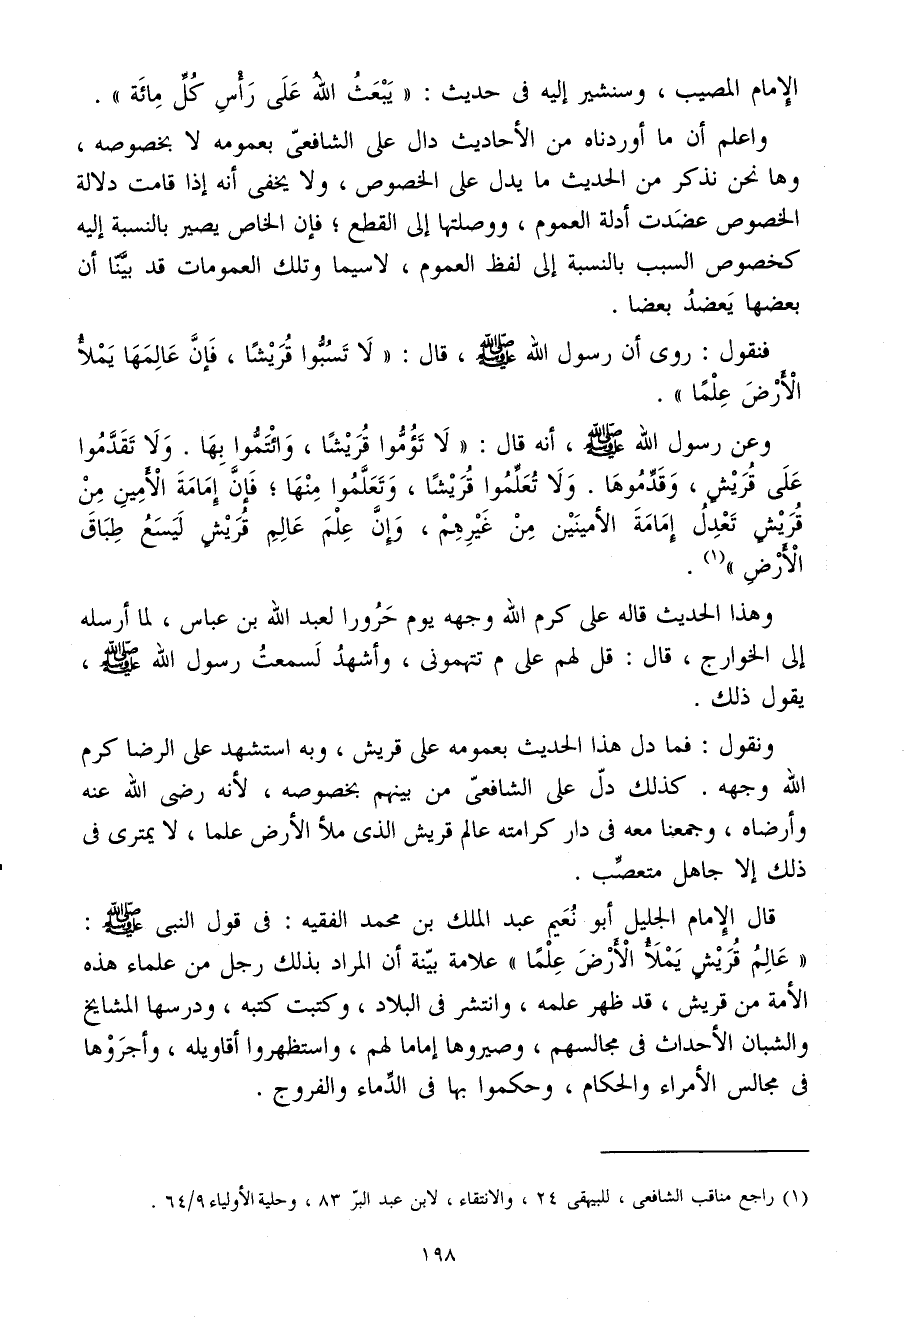 الإمام المصيب ، وسنشير إليه فى حديث : « يَبْعَثُ اللهُ عَلَى رَأْسِ كُلِّ مِائَة » .
واعلم أن ما أوردناه من الأحاديث دال على الشافعىّ بعمومه لا بخصوصه ،
وها نحن نذكر من الحديث ما يدل على الخصوص ، ولا يخفى أنه إذا قامت دلالة
الخصوص عضَدت أدلة العموم ، ووصلتها إلى القطع ؛ فإن الخاص يصير بالنسبة إليه
كخصوص السبب بالنسبة إلى لفظ العموم ، لاسيما وتلك العمومات قد بيَّنّا أن
بعضها يَعضدُ بعضا .
فنقول : روى أن رسول الله ﷺ ، قال : « لَا تَسُبُّوا قُرَيْشًا ، فَإِنَّ عَالِمَهَا يَمْلأُ
الْأَرْضَ عِلْمًا » .
وعن رسول الله ﷺ ، أنه قال : « لَا تَؤُمُّوا قُرَيْشًا ، وَائْتَمُّوا بِهَا . وَلَا تَقَدَّمُوا
عَلَى قُرَيْشٍ ، وَقَدِّمُوهَا . وَلَا تُعَلِّمُوا قُرَيْشًا ، وَتَعَلَّمُوا مِنْهَا ؛ فَإِنَّ إِمَامَةَ الْأَمِينِ مِنْ
قُرَيْشٍ تَعْدِلُ إِمَامَةَ الأمينَيْن مِنْ غَيْرِهِمْ ، وَإِنَّ عِلْمَ عَالِمِ قُرَيْشٍ لَيَسَعُ طِبَاقَ
الْأَرْضِ »(١) .
وهذا الحديث قاله على كرم الله وجهه يوم حَرُورا لعبد الله بن عباس ، لما أرسله
إلى الخوارج ، قال : قل لهم على م تتهمونى ، وأشهدُ لَسمعتُ رسول الله ﷺ ،
يقول ذلك .
ونقول : فما دل هذا الحديث بعمومه على قريش ، وبه استشهد على الرضا كرم
الله وجهه . كذلك دلّ على الشافعىّ من بينهم بخصوصه ، لأنه رضى الله عنه
وأرضاه ، وجمعنا معه فى دار كرامته عالم قريش الذى ملأ الأرض علما ، لا يمترى فى
ذلك إلا جاهل متعصِّب .
قال الإمام الجليل أبو نُعَيم عبد الملك بن محمد الفقيه : فى قول النبى ﷺ :
« عَالِمُ قُرَيْشٍ يَمْلَأُ الْأَرْضَ عِلْمًا » علامة بيّنة أن المراد بذلك رجل من علماء هذه
الأمة من قريش ، قد ظهر علمه ، وانتشر فى البلاد ، وكتبت كتبه ، ودرسها المشايخ
والشبان الأحداث فى مجالسهم ، وصيروها إماما لهم ، واستظهروا أقاويله ، وأجرَوْها
فى مجالس الأمراء والحكام ، وحكموا بها فى الدِّماء والفروج .
(١) راجع مناقب الشافعى ، للبيهقى ٢٤ ، والانتقاء ، لابن عبد البرّ ٨٣ ، وحلية الأولياء ٦٤/٩ .
١٩٨